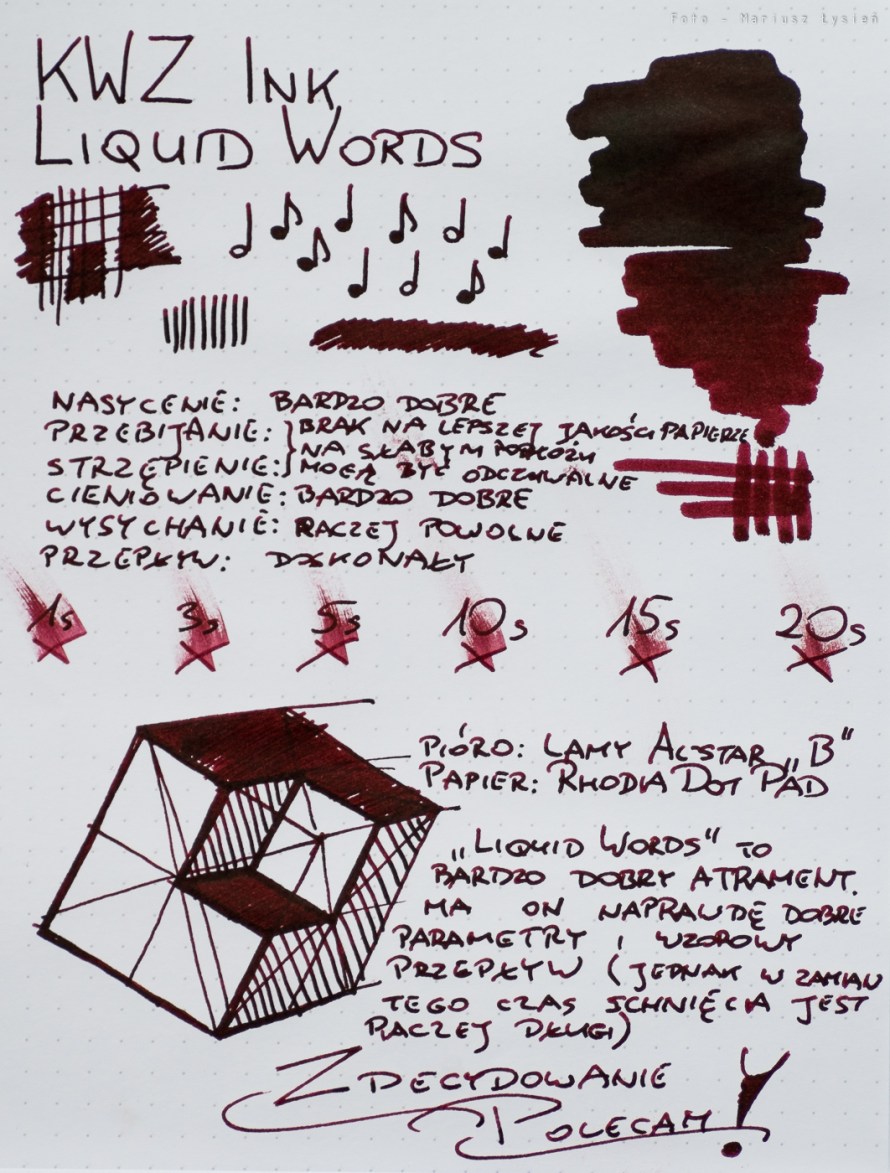 Foto - Mariusz Łysień
KWZ INK
LIQUID WORDS
NASYCENIE: BARDZO DOBRE
PRZEBIJANIE: } BRAK NA LEPSZEJ JAKOŚCI PAPIERZE
NA SŁABYM PODŁOŻU
STRZĘPIENIE: MOGĄ BYĆ ODCZUWALNE
CIENIOWANIE: BARDZO DOBRE
WYSYCHANIE: RACZEJ POWOLNE
PRZEPŁYW: DOSKONAŁY
1s 3s 5s 10s 15s 20s
PIÓRO: LAMY AL-STAR „B"
PAPIER: RHODIA DOT PAD
„LIQUID WORDS" TO
BARDZO DOBRY ATRAMENT.
MA ON NAPRAWDĘ DOBRE
PARAMETRY I WZOROWY
PRZEPŁYW (JEDNAK W ZAMIAN
TEGO CZAS SCHNIĘCIA JEST
RACZEJ DŁUGI)
ZDECYDOWANIE
POLECAM!